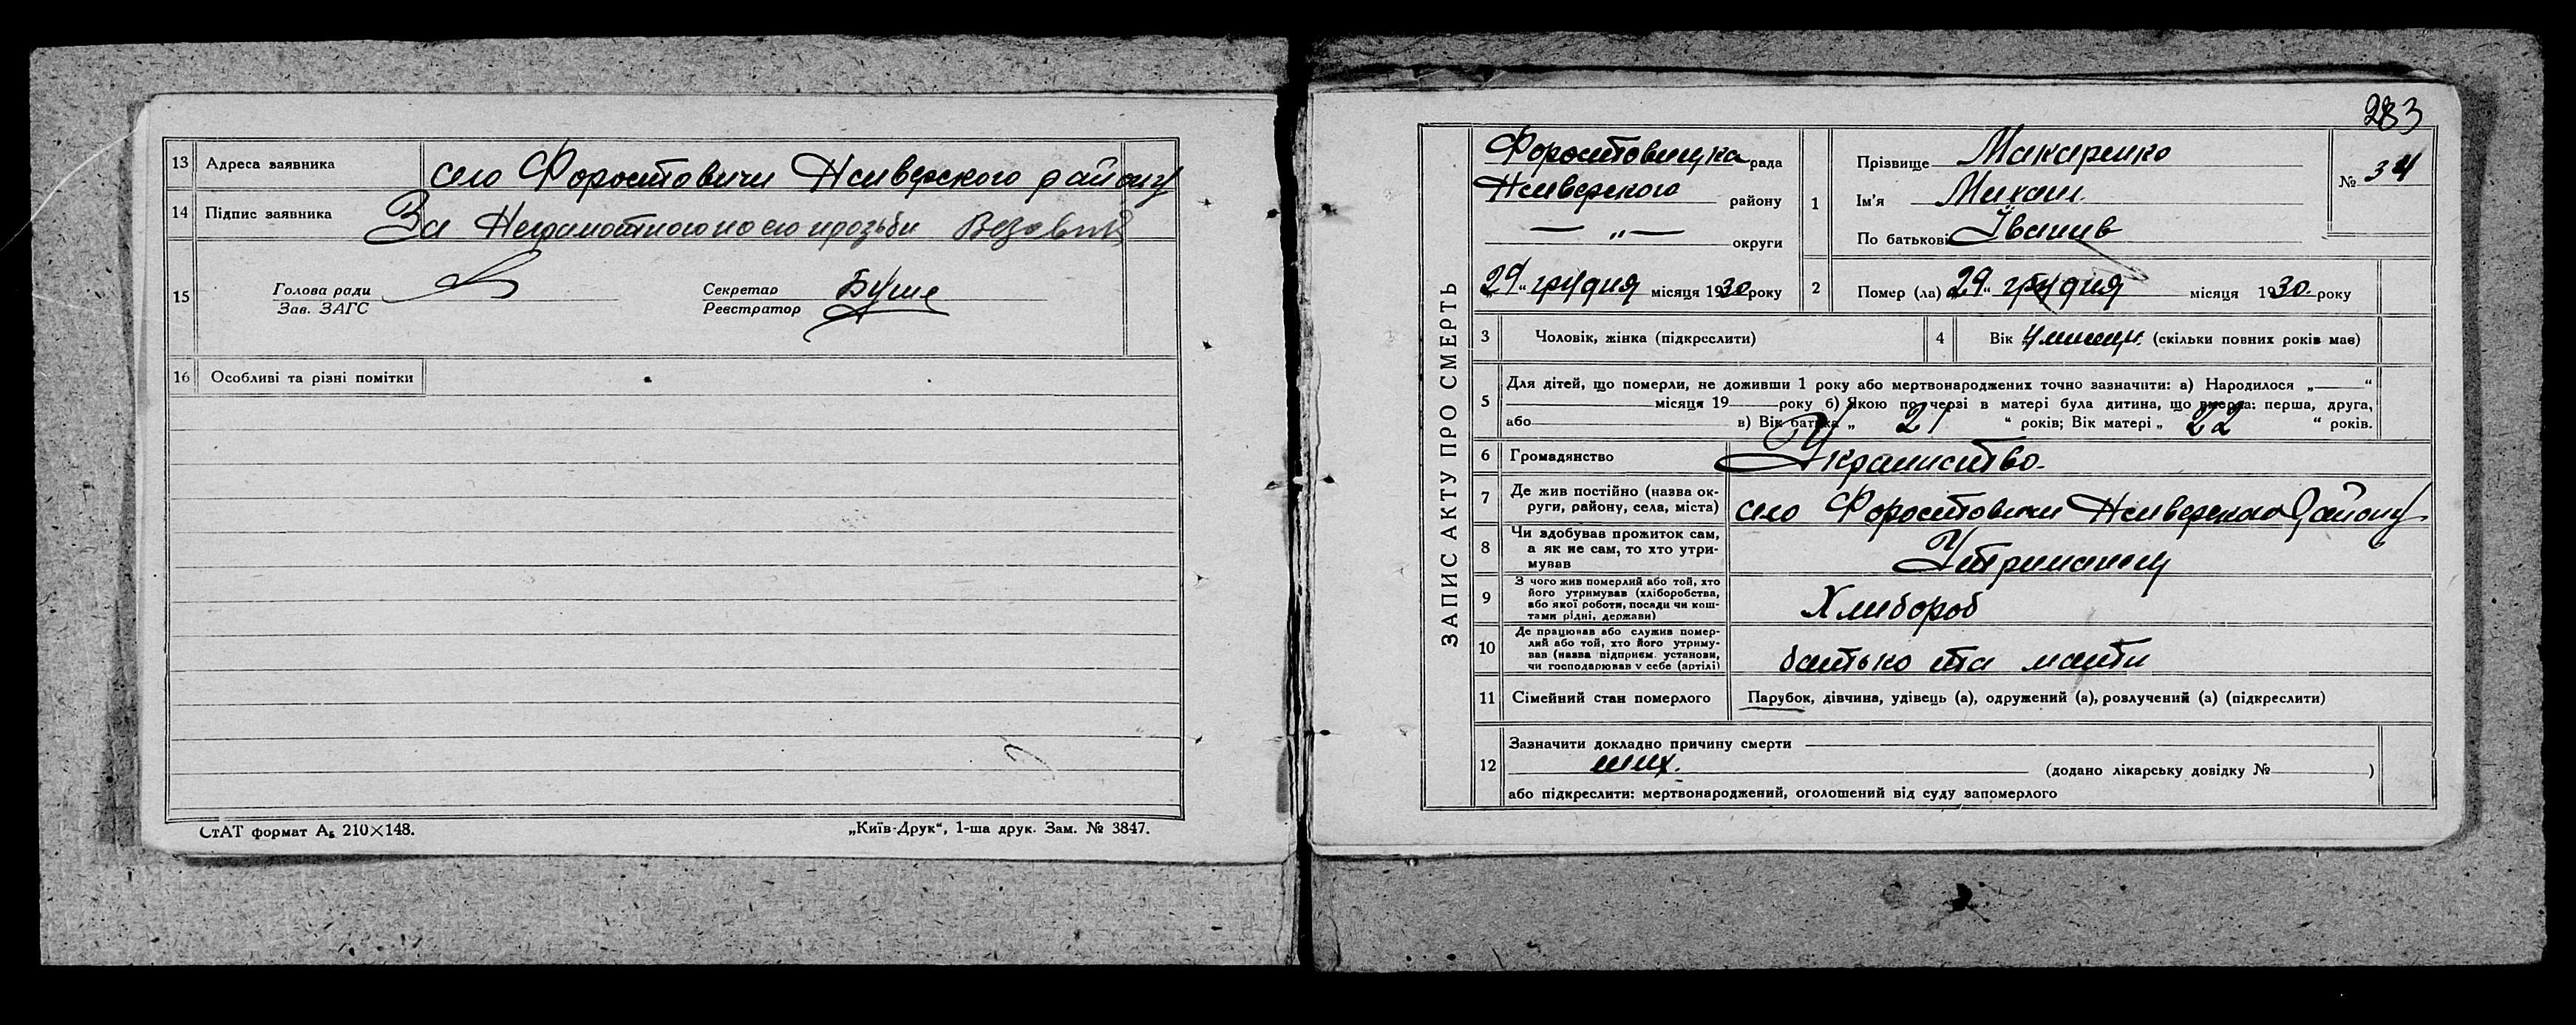 13 Адреса заявника село Форостовичи Нсиверского району
14 Підпис заявника За Неграмотного по его прозьби
15 Голова ради
Зав. ЗАГС
Секретар
Реєстратор
16 Особливі та різні помітки
СтАТ формат А5 210×148.
„Київ-Друк“, 1-ша друк. Зам. № 3847.
283
ЗАПИС АКТУ ПРО СМЕРТЬ
Форостовицка рада
Нсиверского району
— „ — округи
„29“ грудня місяця 1930 року
1 Прізвище Макаренко
Ім'я
По батькові Іванив
№ 34
2 Помер (ла) „29“ грудня місяця 1930 року
3 Чоловік, жінка (підкреслити)
4 Вік (скільки повних років має)
5 Для дітей, що померли, не доживши 1 року або мертвонароджених точно зазначити: а) Народилося „ “
місяця 19 року б) Якою по черзі в матері була дитина, що вмерла: перша, друга,
або в) Вік батька „ 21 “ років; Вік матері „ 22 “ років.
6 Громадянство
7 Де жив постійно (назва ок-
руги, району, села, міста) село Форостовичи Нсиверского Району
8 Чи здобував прожиток сам,
а як не сам, то хто утри-
мував
9 З чого жив померлий або той, хто
його утримував (хліборобства,
або якої роботи, посади чи кош-
тами рідні, держави) Хлибороб
10 Де працював або служив помер-
лий або той, хто його утриму-
вав (назва підприєм. установи,
чи господарював у себе (артілі) батько та мати
11 Сімейний стан померлого Парубок, дівчина, удівець (а), одружений (а), розлучений (а) (підкреслити)
12 Зазначити докладно причину смерти
(додано лікарську довідку № )
або підкреслити: мертвонароджений, оголошений від суду запомерлого